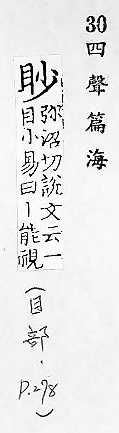 30四聲篇海
眇弥沼切說文云一
目小易曰丨能視
(目部,P.278)